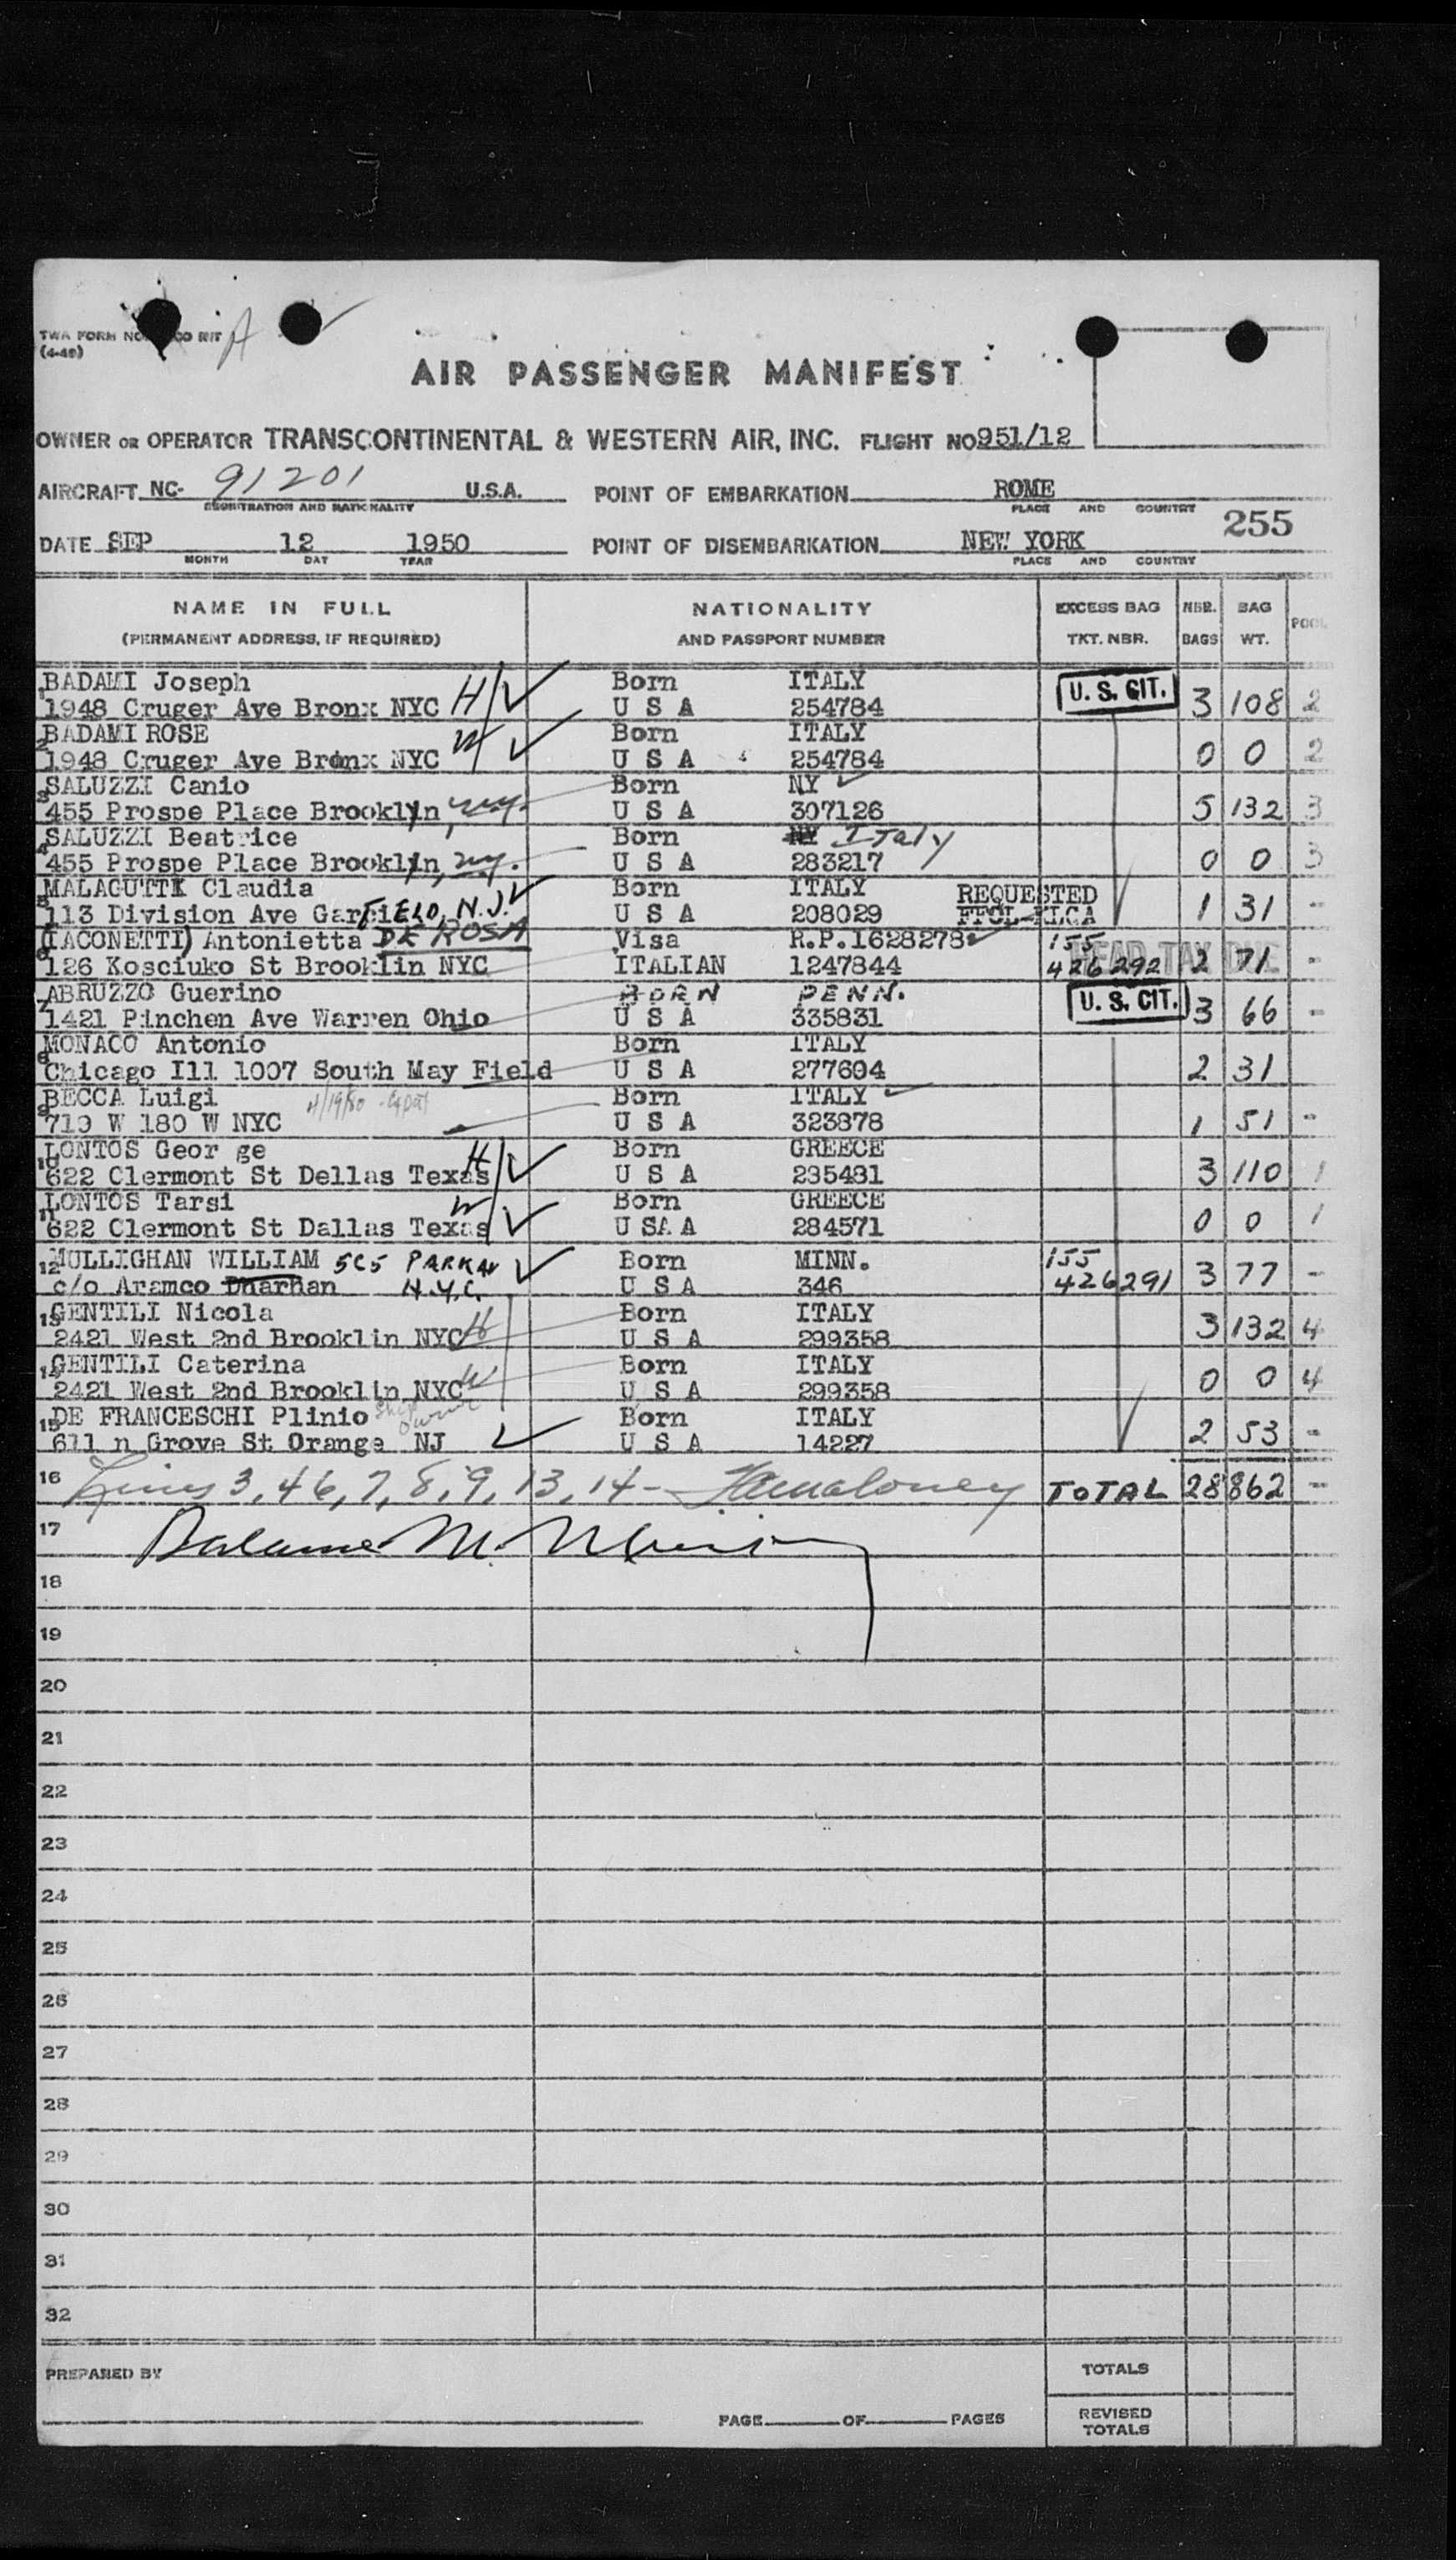 TWA FORM NO.
(4-49)
AIR PASSENGER MANIFEST
OWNER OR OPERATOR TRANSCONTINENTAL & WESTERN AIR, INC. FLIGHT NO 951/12
AIRCRAFT NC- 91201 U.S.A. POINT OF EMBARKATION ROME
REGISTRATION AND NATIONALITY PLACE AND COUNTRY
255
DATE SEP 12 1950 POINT OF DISEMBARKATION NEW YORK
MONTH DAY YEAR PLACE AND COUNTRY
NAME IN FULL NATIONALITY EXCESS BAG NBR. BAG POOL
(PERMANENT ADDRESS, IF REQUIRED) AND PASSPORT NUMBER TKT. NBR. BAGS WT.
BADAMI Joseph Born ITALY U. S. CIT.
1 1948 Cruger Ave Bronx NYC H U S A 254784 3 108 2
BADAMI ROSE Born ITALY
2 1948 Cruger Ave Bronx NYC W U S A 254784 0 0 2
SALUZZI Canio Born NY
3 455 Prospe Place Brooklyn, N.Y. U S A 307126 5 132 3
SALUZZI Beatrice Born NY Italy
4 455 Prospe Place Brooklyn, N.Y. U S A 283217 0 0 3
MALAGUTTI Claudia Born ITALY REQUESTED
5 113 Division Ave GarFIELD, N.J. U S A 208029 1 31 -
(IACONETTI) Antonietta DE ROSA Visa R.P.1628278 155 HEAD TAX DUE
6 126 Kosciuko St Brooklin NYC ITALIAN 1247844 426292 2 71 -
ABRUZZO Guerino BORN PENN. U. S. CIT.
7 1421 Pinchen Ave Warren Ohio U S A 335831 3 66 -
MONACO Antonio Born ITALY
8 Chicago Ill 1007 South May Field U S A 277604 2 31
BECCA Luigi Born ITALY
9 710 W 180 W NYC U S A 323878 1 51 -
LONTOS Geor ge Born GREECE
10 622 Clermont St Dellas Texas H U S A 235431 3 110 1
LONTOS Tarsi Born GREECE
11 622 Clermont St Dallas Texas W U SA A 284571 0 0 1
12 MULLIGHAN WILLIAM 505 PARK AV Born MINN. 155
c/o Aramco Dharhan N.Y.C. U S A 346 426291 3 77 -
13 GENTILI Nicola Born ITALY
2421 West 2nd Brooklin NYC H U S A 299358 3 132 4
14 GENTILI Caterina Born ITALY
2421 West 2nd Brooklin NYC W U S A 299358 0 0 4
15 DE FRANCESCHI Plinio Born ITALY
611 n Grove St Orange NJ U S A 14227 2 53 -
16 Lines 3, 4 6, 7, 8, 9, 13, 14 - TOTAL 28 862 -
17 Balance M.
18
19
20
21
22
23
24
25
26
27
28
29
30
31
32
PREPARED BY TOTALS
PAGE OF PAGES REVISED
TOTALS